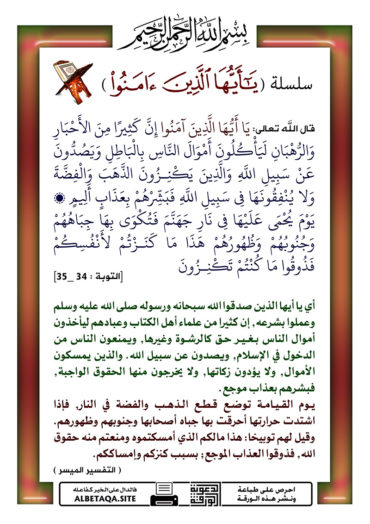 بسم الله الرحمن الرحيم
سلسلة ( يَٰٓأَيُّهَا ٱلَّذِينَ ءَامَنُواْ )
قال الله تعالى: يَا أَيُّهَا الَّذِينَ آمَنُوا إِنَّ كَثِيرًا مِنَ الْأَحْبَارِ
وَالرُّهْبَانِ لَيَأْكُلُونَ أَمْوَالَ النَّاسِ بِالْبَاطِلِ وَيَصُدُّونَ
عَنْ سَبِيلِ اللَّهِ وَالَّذِينَ يَكْنِزُونَ الذَّهَبَ وَالْفِضَّةَ
وَلَا يُنْفِقُونَهَا فِي سَبِيلِ اللَّهِ فَبَشِّرْهُمْ بِعَذَابٍ أَلِيمٍ ۞
يَوْمَ يُحْمَى عَلَيْهَا فِي نَارِ جَهَنَّمَ فَتُكْوَى بِهَا جِبَاهُهُمْ
وَجُنُوبُهُمْ وَظُهُورُهُمْ هَذَا مَا كَنَزْتُمْ لِأَنْفُسِكُمْ
فَذُوقُوا مَا كُنْتُمْ تَكْنِزُونَ
[التوبة : 34 _35]
أي يا أيها الذين صدقوا الله سبحانه ورسوله صلى الله عليه وسلم
وعملوا بشرعه، إن كثيرا من علماء أهل الكتاب وعبادهم ليأخذون
أموال الناس بغير حق كالرشوة وغيرها، ويمنعون الناس من
الدخول في الإسلام، ويصدون عن سبيل الله. والذين يمسكون
الأموال، ولا يؤدون زكاتها، ولا يخرجون منها الحقوق الواجبة,
فبشرهم بعذاب موجع.
يوم القيامة توضع قطع الذهب والفضة في النار, فإذا
اشتدت حرارتها أحرقت بها جباه أصحابها وجنوبهم وظهورهم.
وقيل لهم توبيخا: هذا مالكم الذي أمسكتموه ومنعتم منه حقوق
الله، فذوقوا العذاب الموجع؛ بسبب كنزكم وإمساككم.
( التفسير الميسر )
احرص على طباعة
ونشر هذه الورقة
الدعوية
الورقة
فالدال على الخير كفاعله
ALBETAQA.SITE